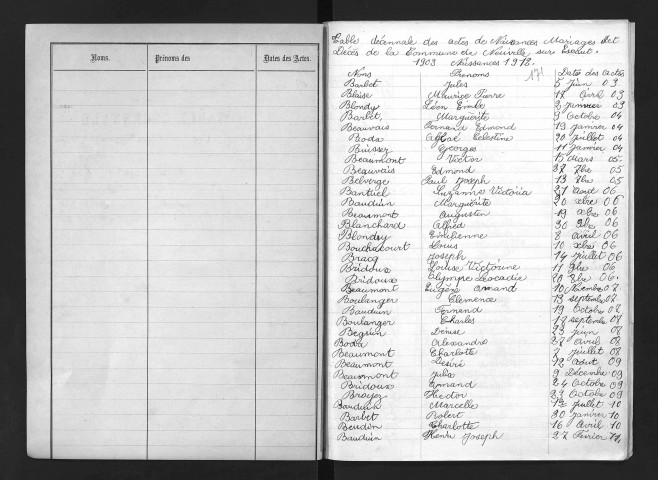 Noms. Prénoms des Dates des Actes.
Table décennale des actes de Naissances Mariages et
Décès de la Commune de Neuville sur Escaut.
1903 Naissances 1912.
Noms Prenoms Dates des actes
Barbet Jules 5 juin 03
Blaise Maurice Pierre 17 Avril 03
Blondy Léon Emile 2 janvier 03
Barbet Marguerite 9 Octobre 04
Beauvais Fernand Edmond 19 janvier 04
Boda Celestine 20 juillet 04
Buisset Georges 11 janvier 04
Beaumont Victor 15 Mars 05
Beauvais Edmond 27 7bre 05
Belverge Paul Joseph 13 8bre 05
Bantuel Suzanne Victoria 27 Aout 06
Bauduin Marguerite 20 xbre 06
Beaumont Augustin 19 xbre 06
Blanchard Alfred 30 9bre 06
Blondy Emilienne 8 avril 06
Bouchacourt Louis 10 xbre 06
Bracq Joseph 14 juillet 06
Bridoux Louise Victorine 11 9bre 06
Bridoux Olympe Leocadie 20 8bre 06.
Beaumont Eugène Armand 10 Novembre 07
Boulanger Clemence 13 septembre 07
Bauduin Fernand 19 Octobre 07
Boulanger Charles 17 septembre 07
Begruin Denise 23 juin 08
Boda Alexandre 27 avril 08
Beaumont Charlotte 2 juillet 08
Beaumont Désiré 12 aout 09
Beaumont Julia 9 Décembre 09
Bridoux Armand 24 Octobre 09
Broyez Hector 23 Octobre 09
Bauduin Marcelle 12 juillet 10
Barbet Robert 30 janvier 10
Beudin Charlotte 16 Avril 10
Bauduin Henri Joseph 27 Fevrier 11